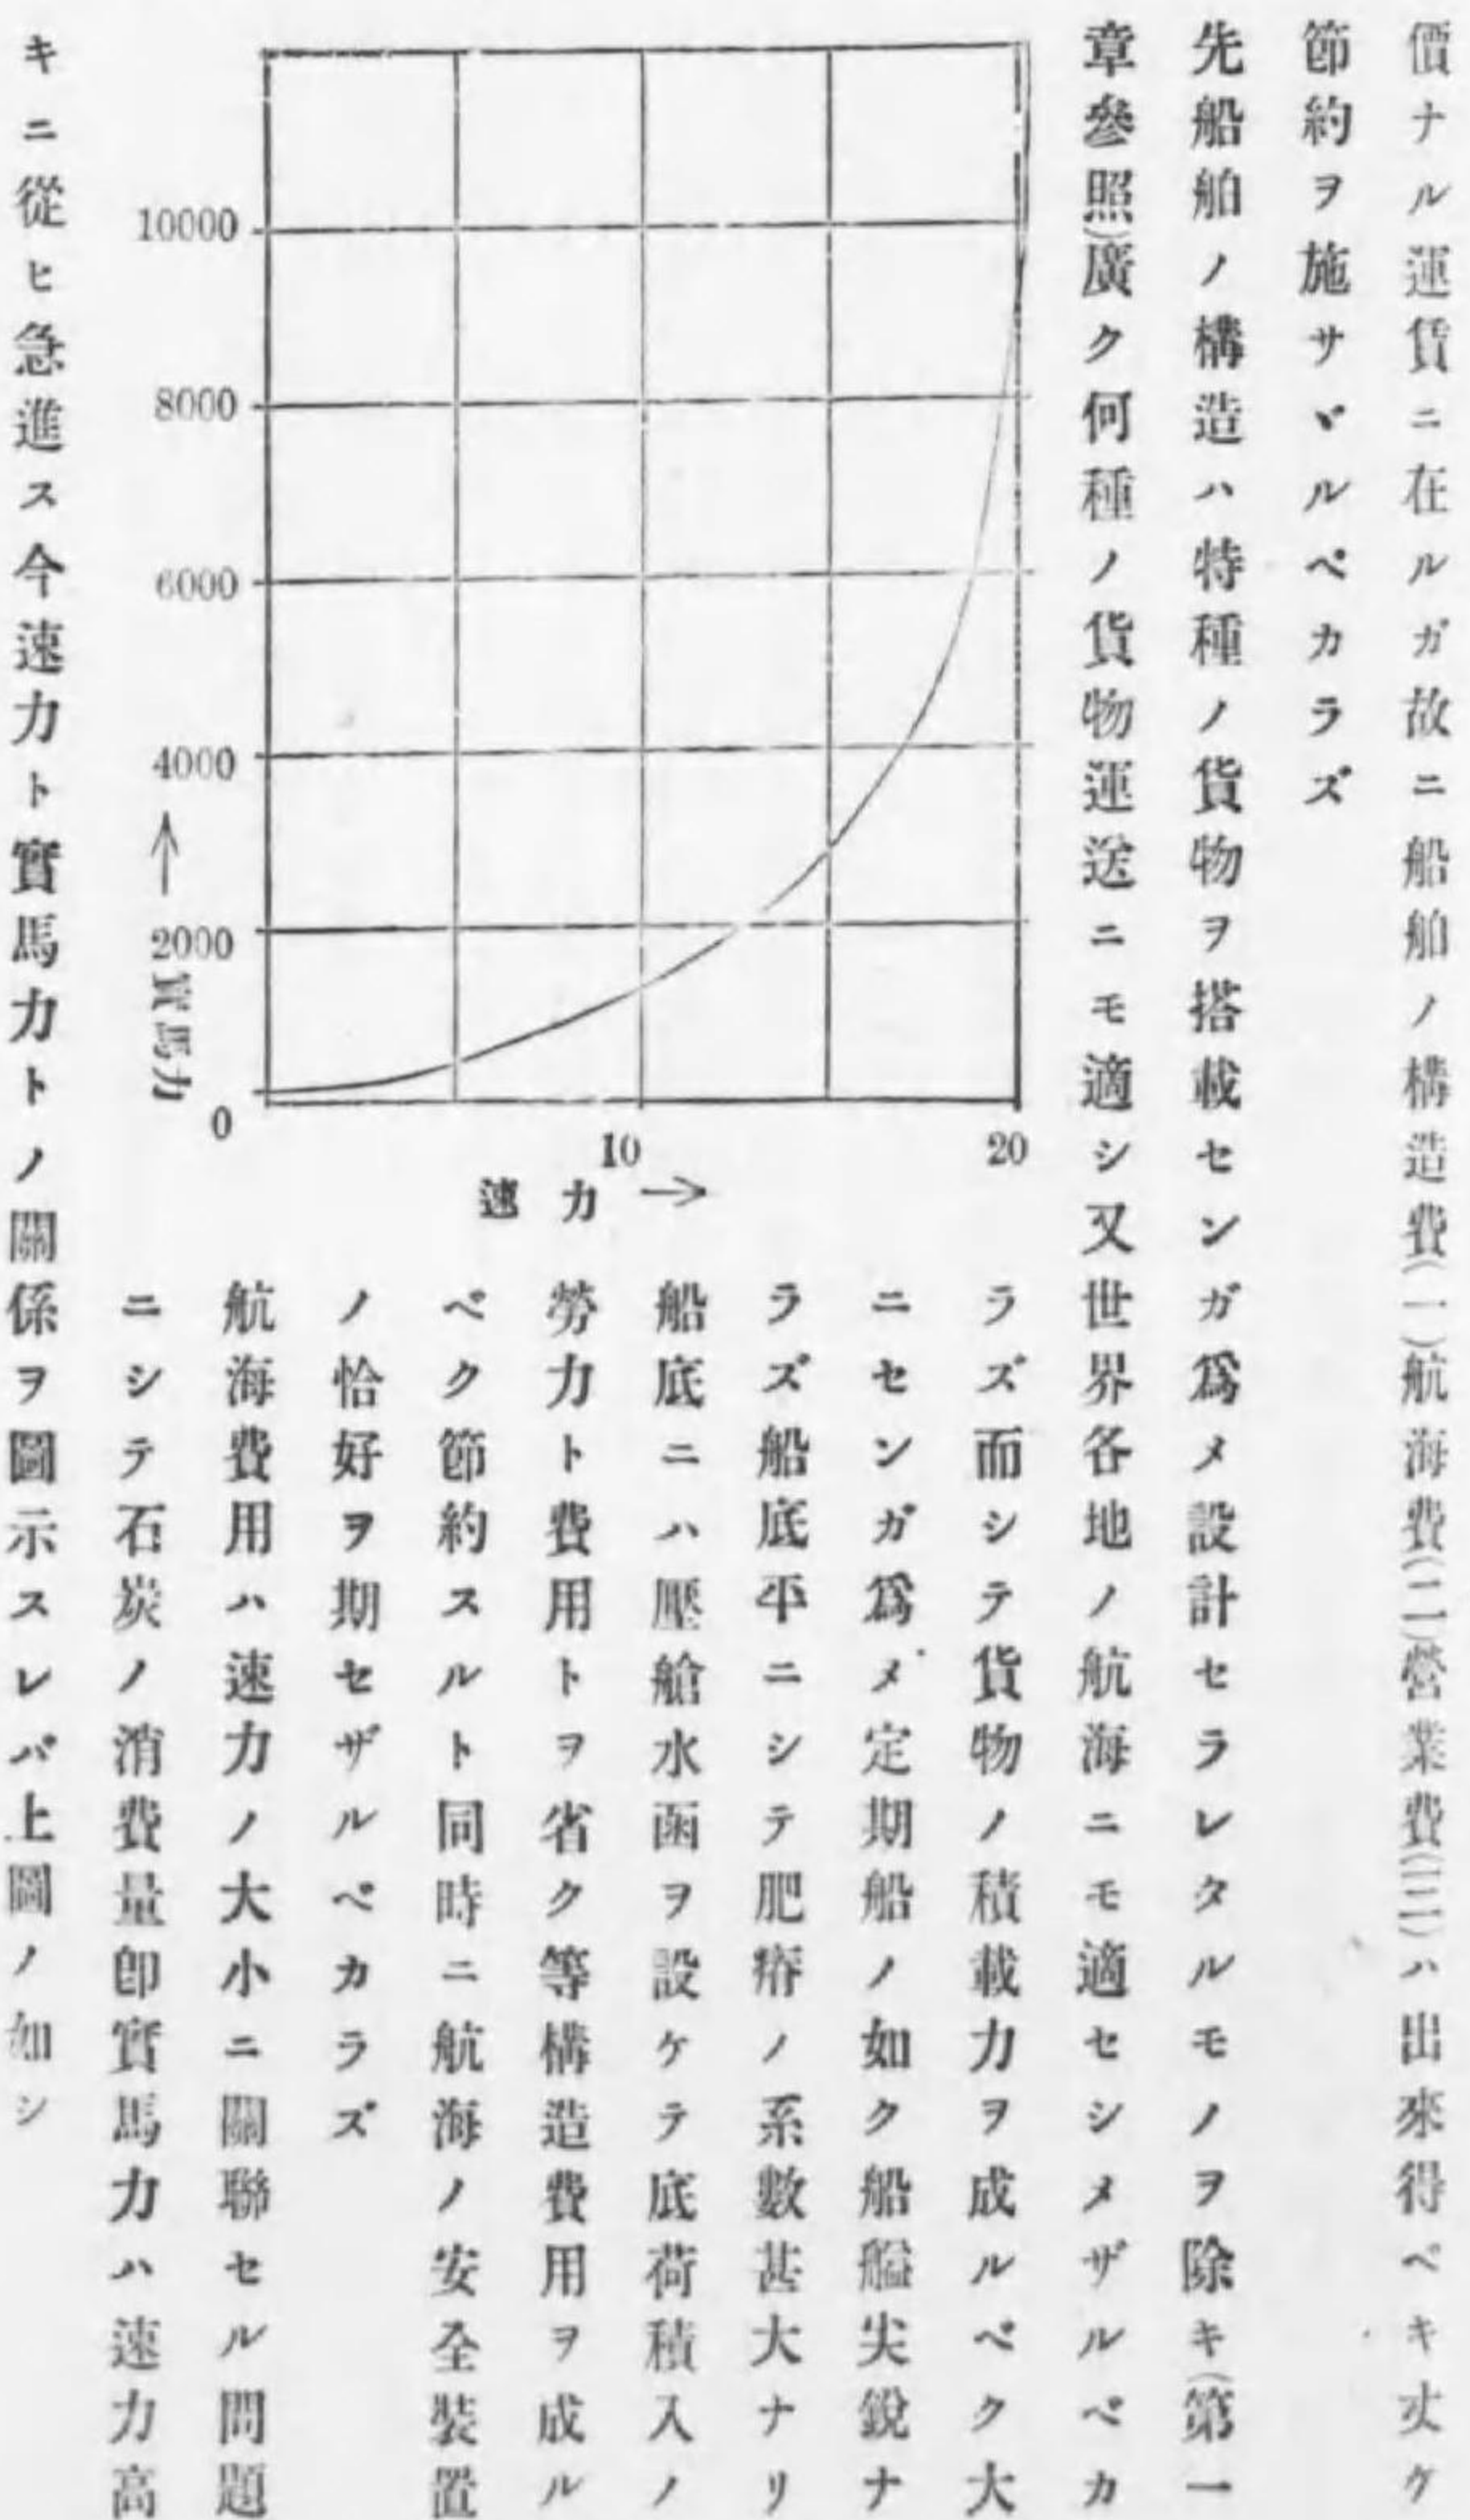 價ナル運賃ニ在ルガ故ニ船舶ノ構造費(一)航海費(二)營業費(三)ハ出來得ベキ丈ケ
節約ヲ施サヾルベカラズ
先船舶ノ構造ハ特種ノ貨物ヲ搭載センガ爲メ設計セラレタルモノヲ除キ(第一
章參照)廣ク何種ノ貨物運送ニモ適シ又世界各地ノ航海ニモ適セシメザルベカ
ラズ而シテ貨物ノ積載力ヲ成ルベク大
ニセンガ爲メ定期船ノ如ク船艢尖銳ナ
ラズ船底平ニシテ肥瘠ノ系數甚大ナリ
船底ニハ壓艙水函ヲ設ケテ底荷積入ノ
勞力ト費用トヲ省ク等構造費用ヲ成ル
ベク節約スルト同時ニ航海ノ安全裝置
ノ恰好ヲ期セザルベカラズ
航海費用ハ速力ノ大小ニ關聯セル問題
ニシテ石炭ノ消費量卽實馬力ハ速力高
キニ從ヒ急進ス今速力ト實馬力トノ關係ヲ圖示スレバ上圖ノ如シ
10000
8000
6000
4000
2000
0
實馬力
→
10
20
速力 →